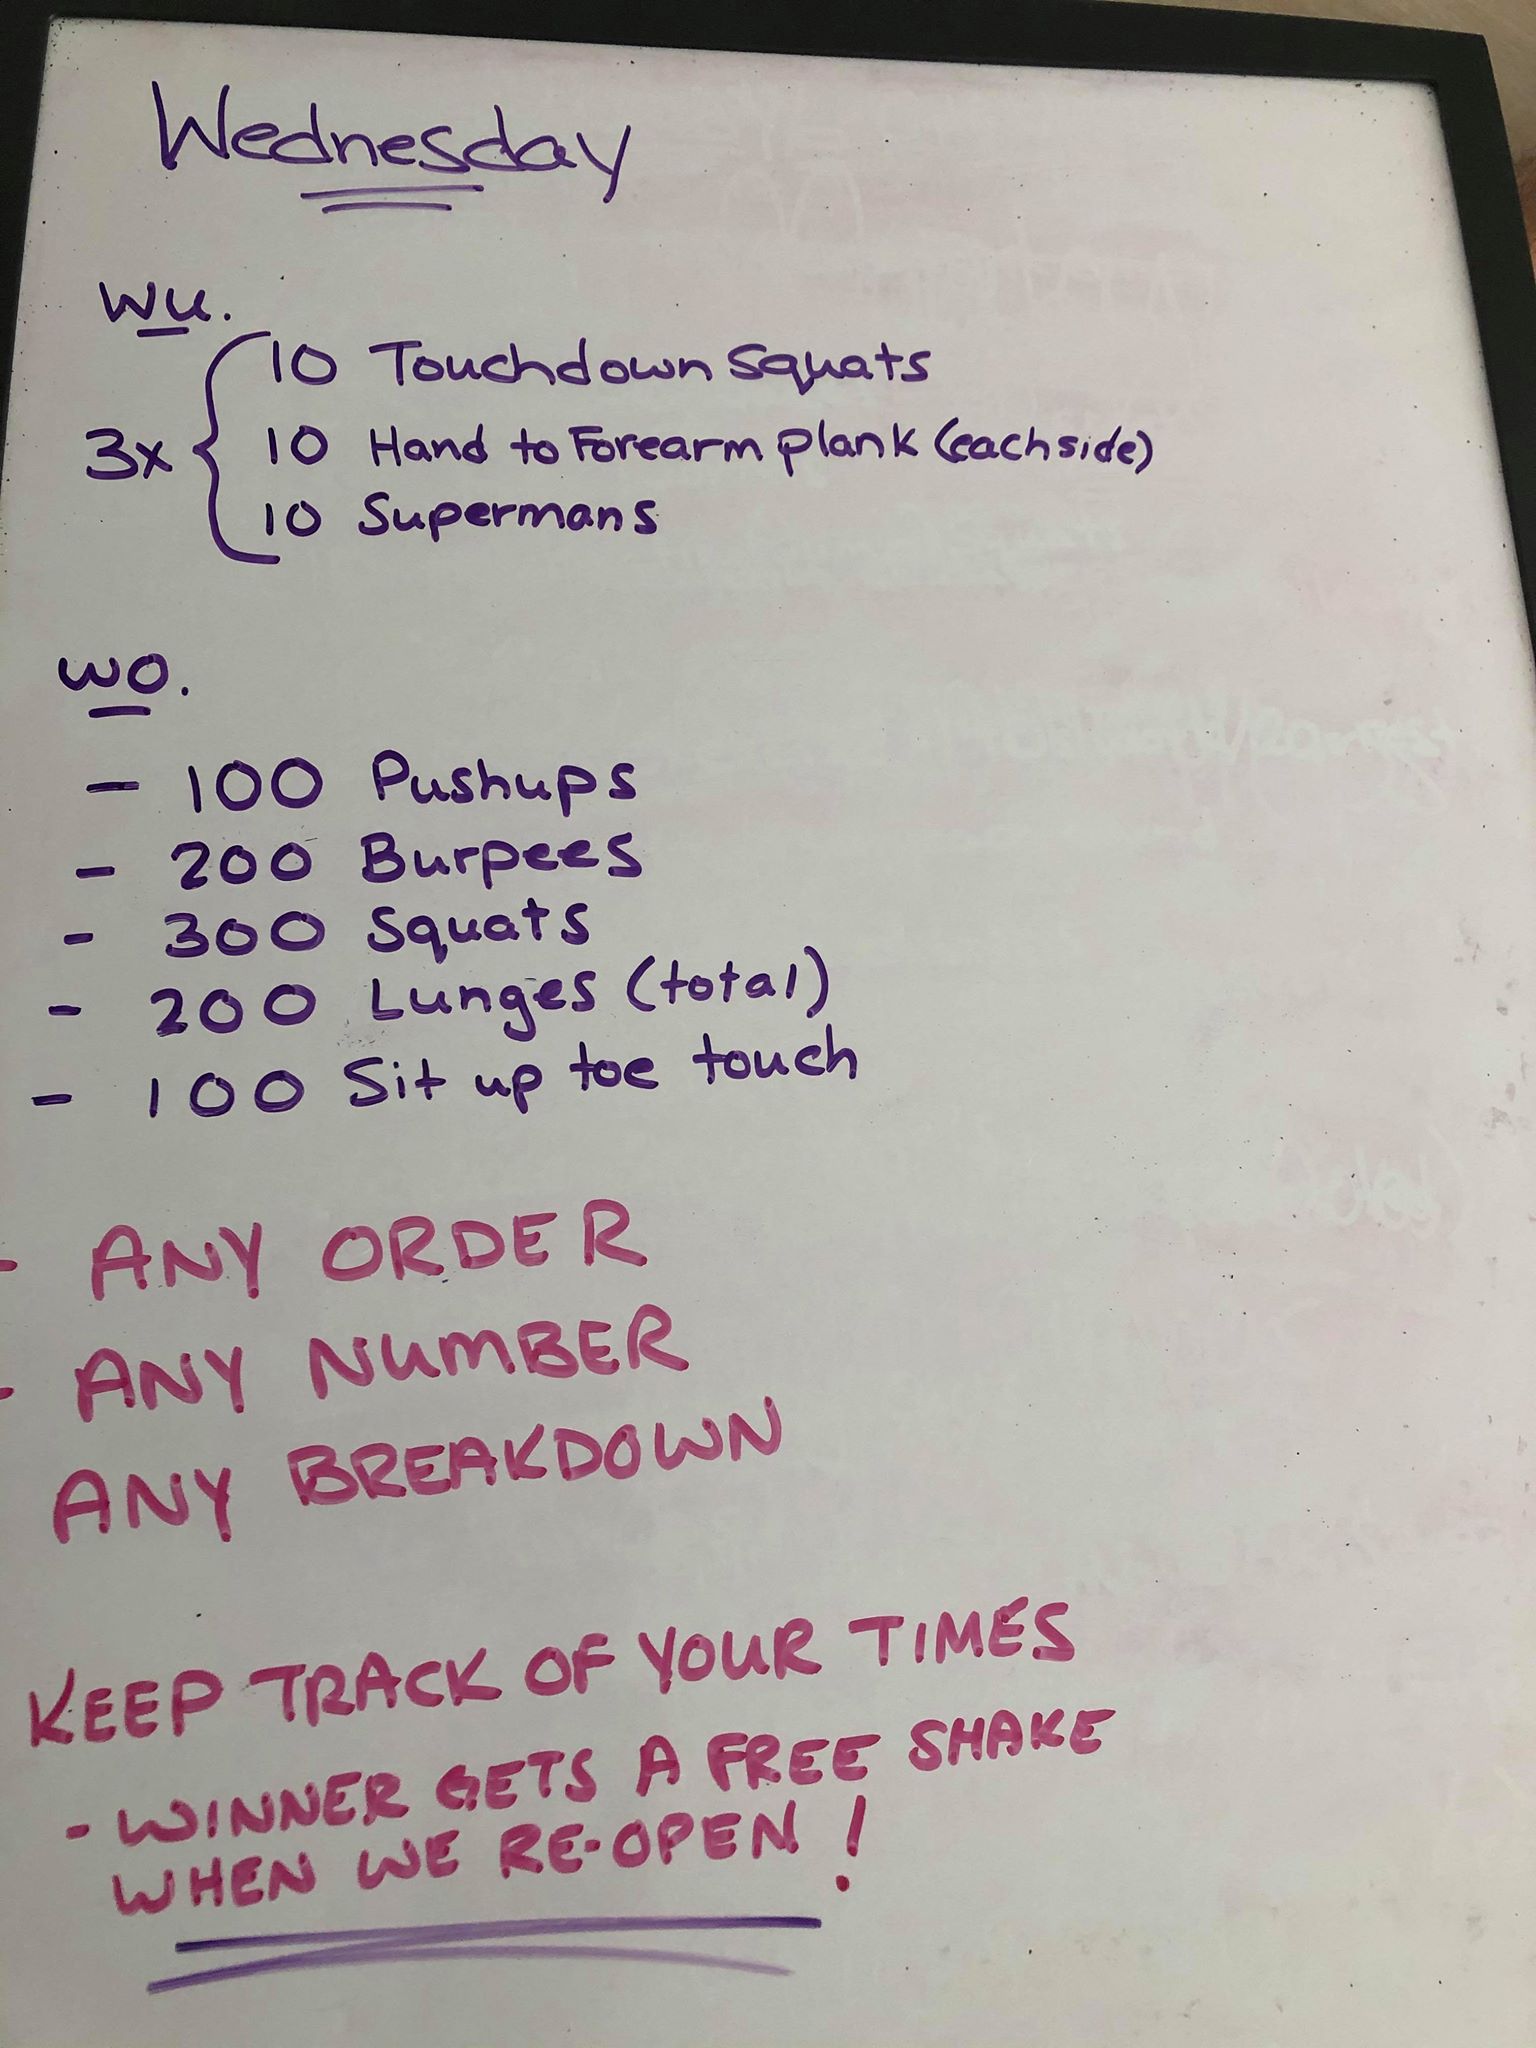 Wednesday
WU.
10 Touchdown Squats
3x
10 Hand to Forearm plank (each side)
10 Supermans
WO.
- 100 Pushups
- 200 Burpees
- 300 Squats
- 200 Lunges (total)
- 100 Sit up toe touch
- ANY ORDER
- ANY NUMBER
ANY BREAKDOWN
KEEP TRACK OF YOUR TIMES
- WINNER GETS A FREE SHAKE
WHEN WE RE-OPEN!